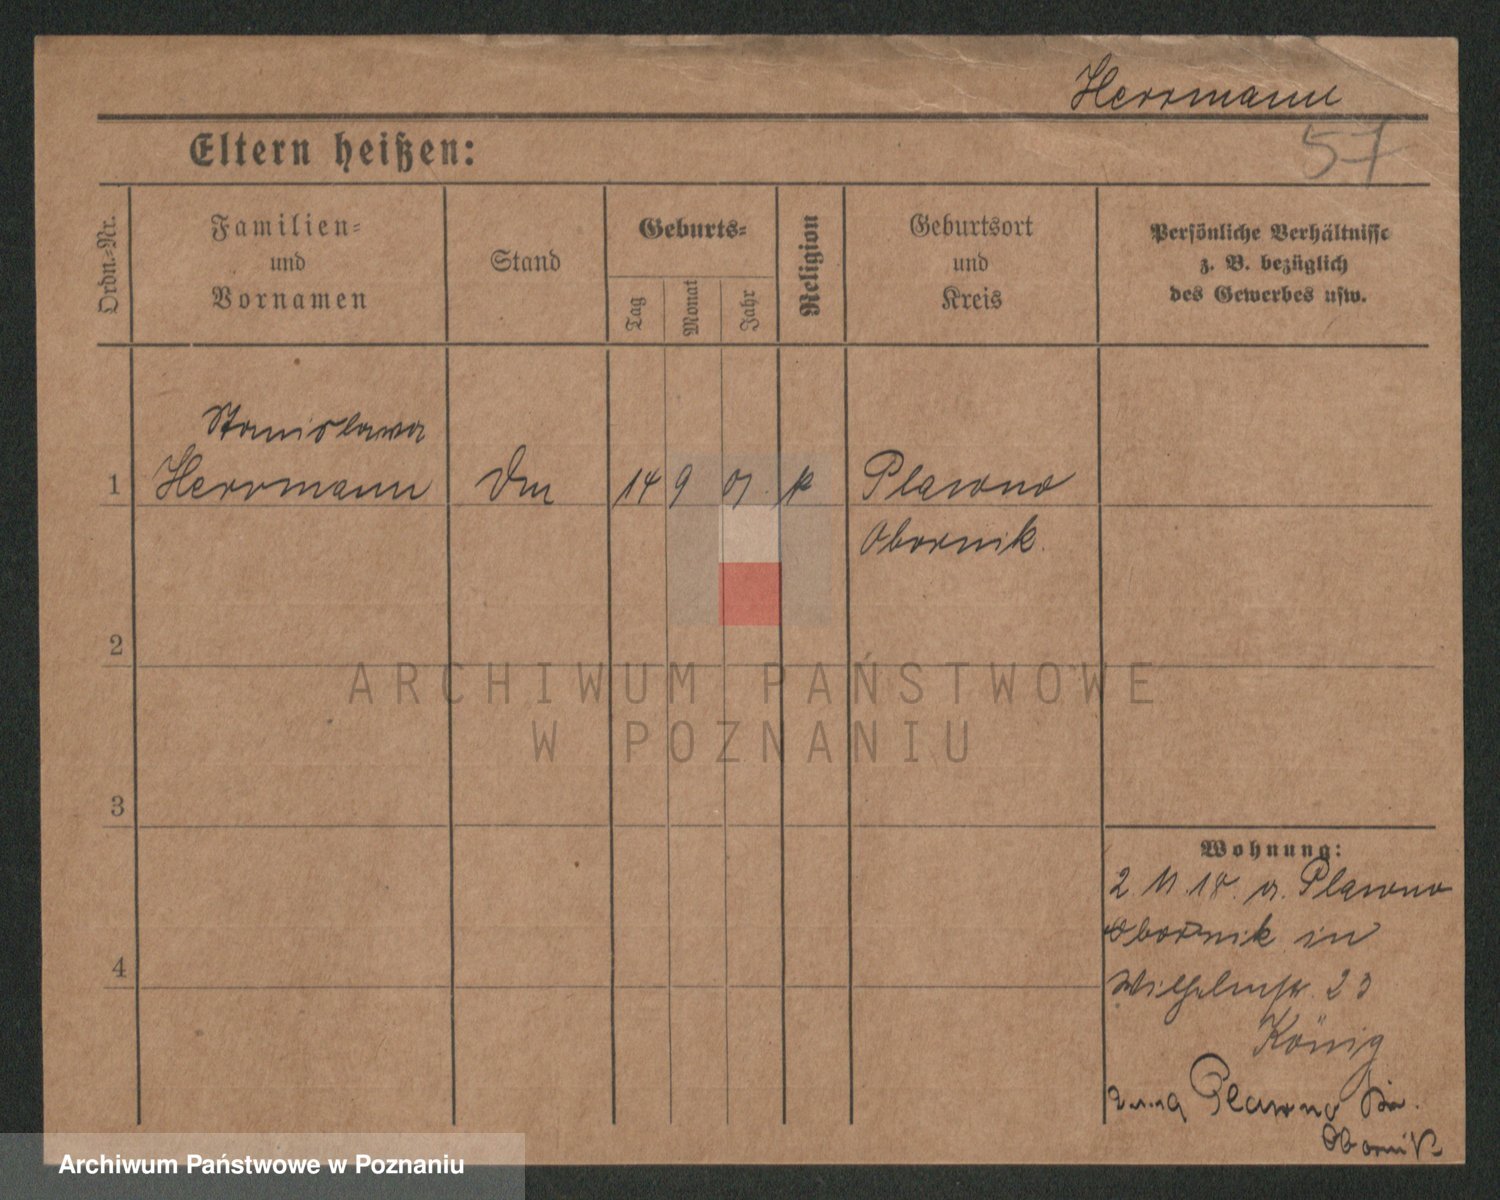 Herrmann
57
Eltern heißen:
Ordn.-Nr.
Familien-
und
Vornamen
Stand
Geburts-
Tag
Monat
Jahr
Religion
Geburtsort
und
Kreis
Persönliche Verhältnisse
z. B. bezüglich
des Gewerbes usw.
Stanislawa
1 Herrmann 14 9 01. k Plawno
Obornik.
2
ARCHIWUM PAŃSTWOWE
W POZNANIU
3
Wohnung:
2 11. 18. Plawno
Obornik in
4
Wilhelmstr. 23
König
Plawno
Obornik
Archiwum Państwowe w Poznaniu